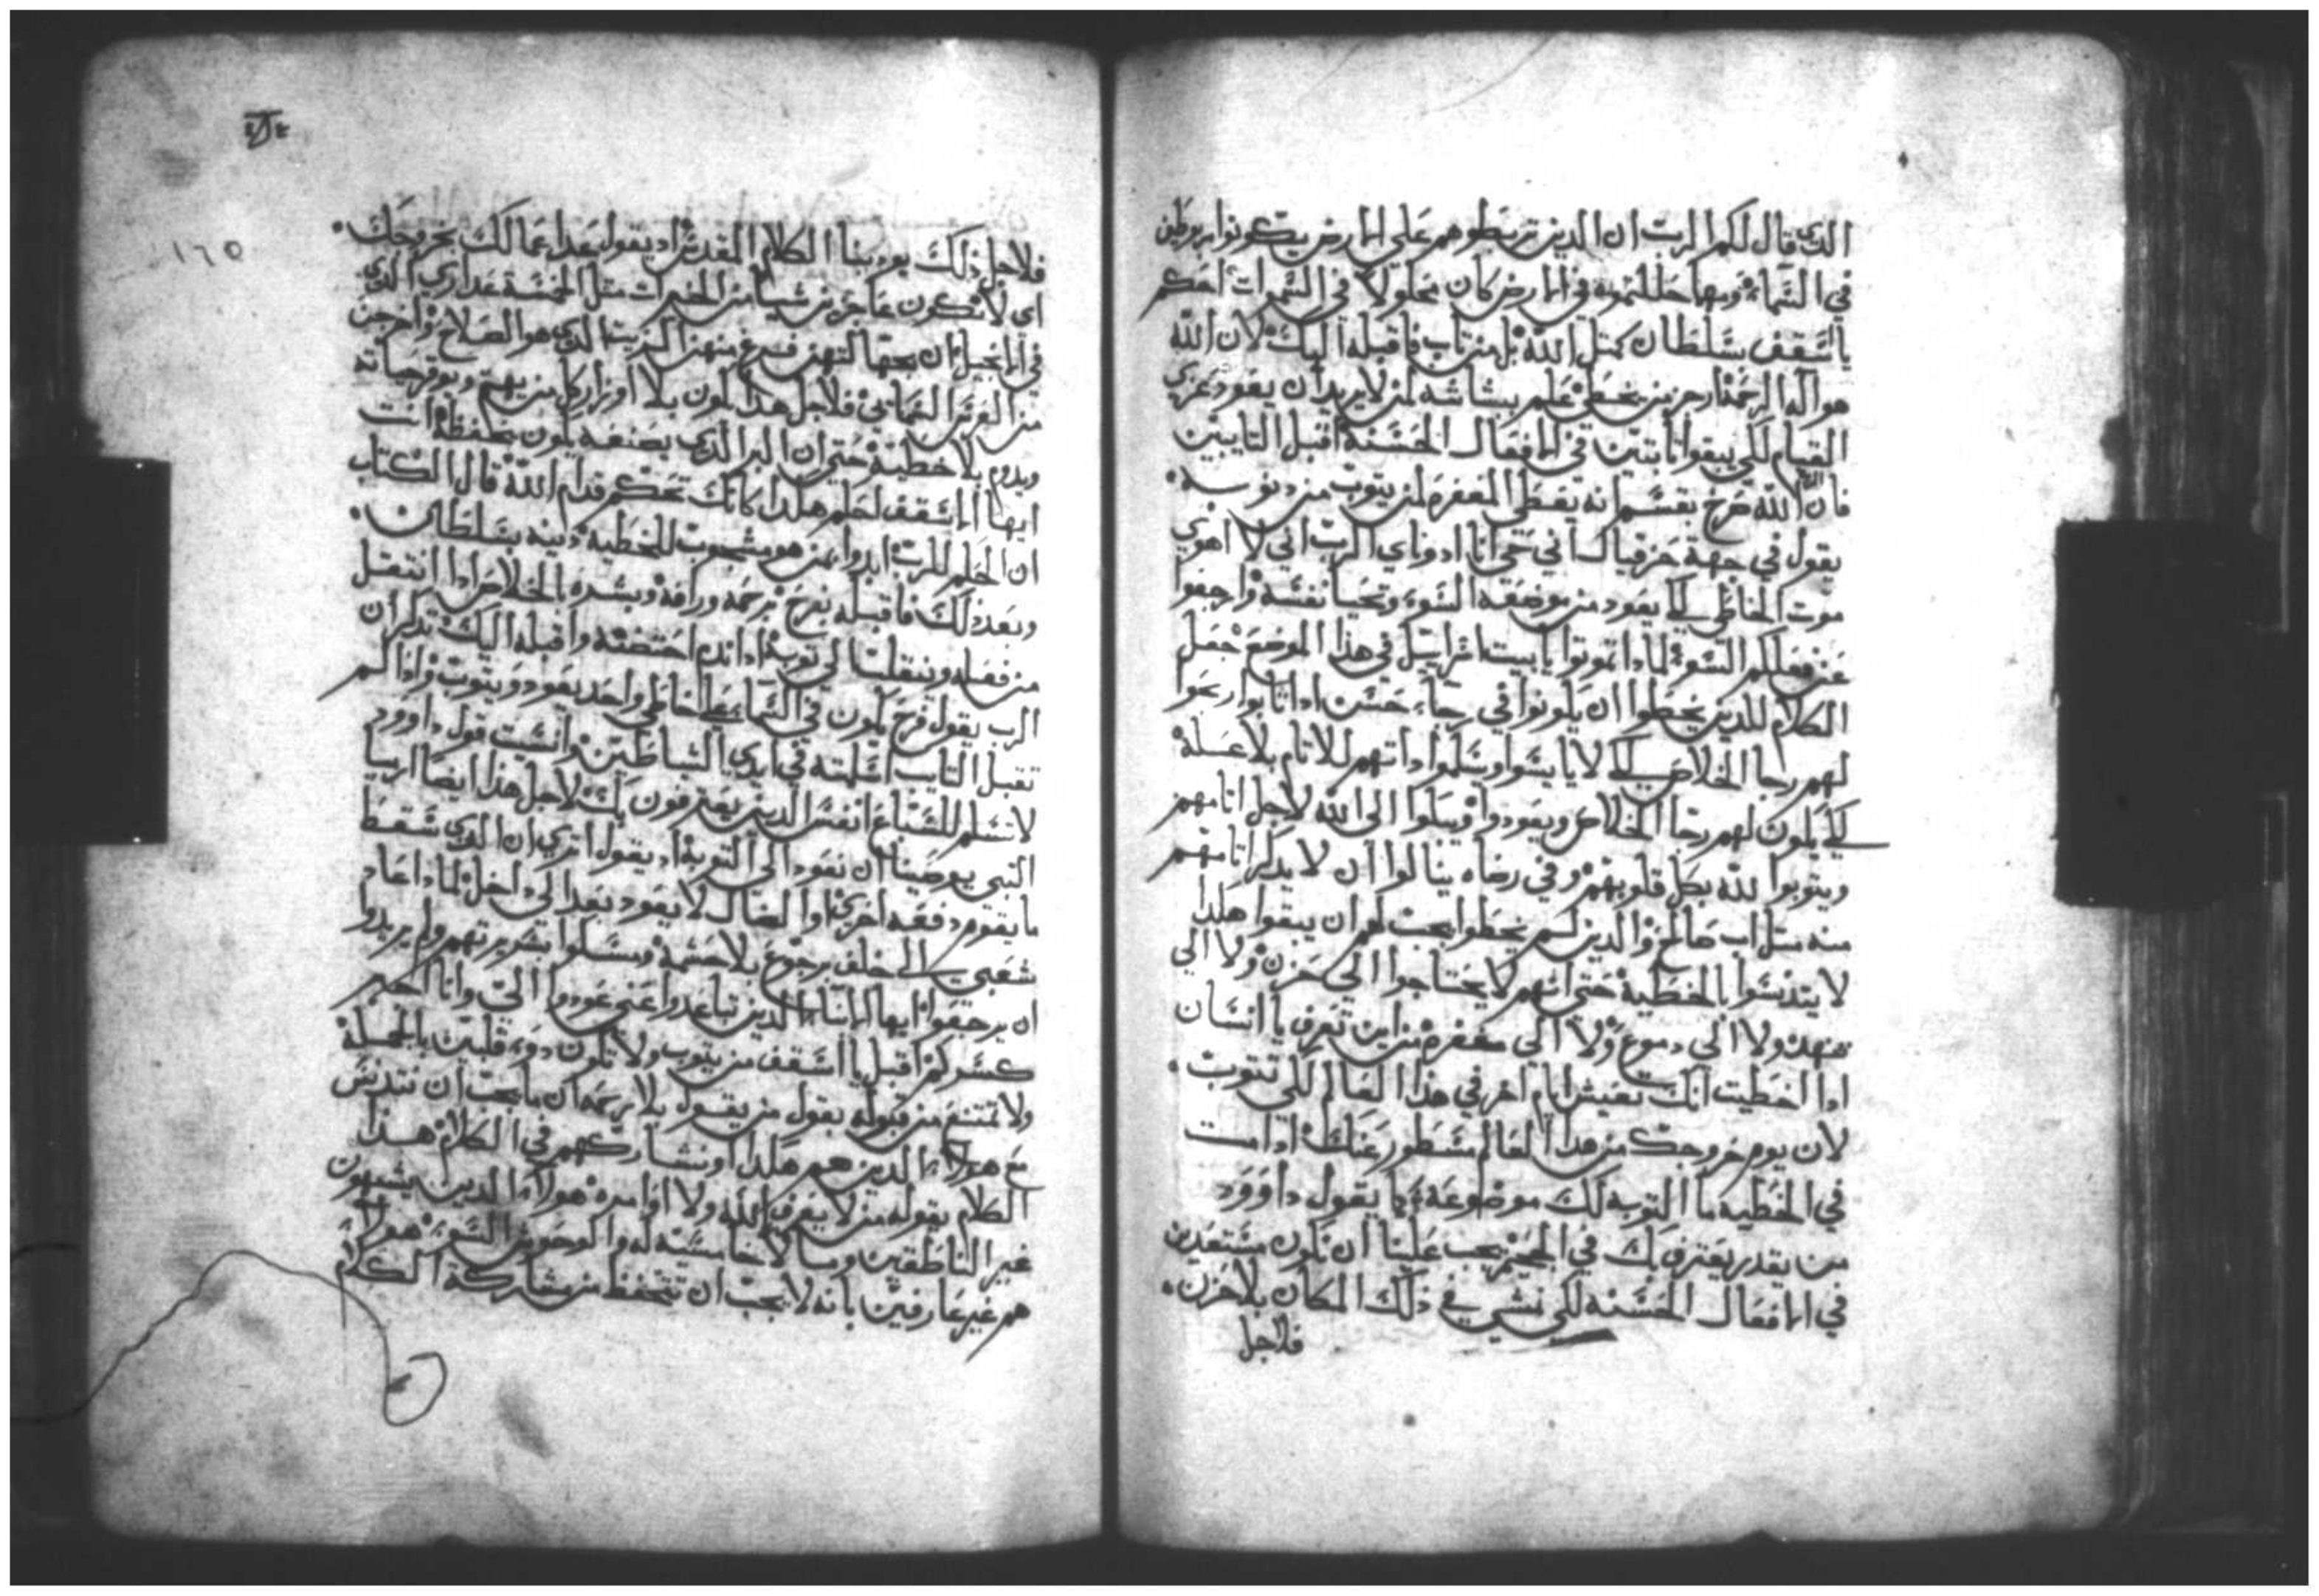 الذي قال لكم الرب ان الدين تربطوهم على الارض يكونوا مربوطين
في السماء ومهما حللتموه في الارض كان محلولا في السموات احكم
يا اسقف بسلطان كمتل الله بل من تاب فاقبله اليك لان الله
هو اله الرحمة ازجر من يخطي علم بشاشه لمن لا يريد ان يعود عزي
القيام لكي يبقوا تابتين في الافعال الحسنة اقبل التايبين
فان الله صرخ بقسم انه يعطي المغفره لمن يتوب من دنوبه
يقول في جهة حزقيال اني حي انا ادوناي الرب اني لا اهوي
موت الخاطي لكي يعود من موضعه السوء وتحيا نفسه وارجعوا
عن فعلكم السوء لمادا تموتوا يا بيت اسراييل في هدا الموضع جعل
الكلام للدين يخطوا ان يكونوا في رجاء حسن ادا تابوا ربحوا
لهم رجا الخلاص لكي لا يايسوا ويسلموا داتهم للاتام بلا عسله
لكي يكون لهم رجا الخلاص ويعودوا ويبكوا الى الله لاجل اتامهم
ويتوبوا لله بكل قلوبهم وفي رضاه ينالوا ان لا يدكر اتامهم
منه متل اب صالح والدين لم يخطوا يجب لهم ان يبقوا هكدا
لا يتدنسوا بالخطية حتى انهم لا يحتاجوا الى حزن ولا الى
تنهد ولا الي دموع ولا الي مغفره من اين تعرف يا انسان
ادا اخطيت انك تعيش ايام اخر في هدا العالم لكي تتوب
لان يوم خروجك من هدا العالم مسطور عنك ادا مت
في الخطيه ما التوبه لك موضوعة كما يقول داوود
من يقدر يعترف بك في الجحيم يجب علينا ان نكون مستعدين
في الافعال الحسنه لكي نمشي في ذلك المكان بلا حزن
فلاجل
١٦٥
فلاجل ذلك يودبنا الكلام المقدس اد يقول اعد اعمالك بخروجك
اى لا تكون عاجز من شيا من الخيرات متل الخمسة عداري الدي
في الانجيل ان جهالتهن فرغ منهن الزيت الدي هو الصلاح واخرجن
من العرس السماىي فلاجل هدا يكون بلا اوزار كل من يهتم ويوقر حياته
ويدوم بلا خطية حتى ان البر الدي يصنعه يكون يحفظه انت
ايها الاسقف احكم هكدا كانك تحكم قدام الله قال الكتاب
ان الحكم للرب ابدوا بمن هو مشجوب للخطيه دينه بسلطان
وبعد ذلك فاقبله بفرح برحمه ورافه وبشره بالخلاص ادا انتقل
من فعله وننقلت الى توبة ادا ندم احتضنه واقبله اليك تدكر ان
الرب يقول فرح يكون في السماء على خاطي واحد يعود ويتوب وادا لم
تقبل التايب اسلمته في ايدي الشياطين وانسيت قول داوود
لا تسلم للسباع انفس الدين يعترفون بك لاجل هدا ايضا ارميا
النبى يعرضنا ان نعود الى التوبة اد يقول اترى ان الدي سقط
ما يقوم دفعه اخرى او الضال لا يعود بعد الى داخل لمادا عاد
شعبي الى خلف برجوع بلا حشمة ومسكوا بشريرتهم ولم يريدوا
ان يرجعوا ايها الابناء الدين تباعدوا عني عودوا الي وانا اجبر
كسركم اقبل يا اسقف من يتوب ولا تكون دو قلبين بالجملة
ولا تمتنع من قبوله بقول من يقول بلا رحمه ان ما يجب ان نتدنس
مع هولاء الدين هم هكدا او نشاركهم في الكلام هدا
الكلام يقوله من لا يعرف الله ولا اوامره هولاء الدين يشبهون
غير الناطقين وما لا خاسيته له والوحوش السوء هولاء
هم غير عارفين بانه لا يجب ان نتحفظ من مشاركة الكلام